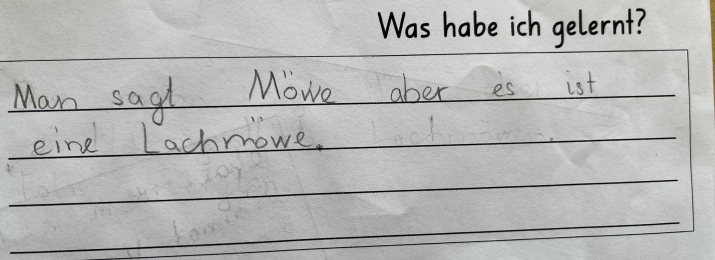 Was habe ich gelernt?
Man sagt Möwe aber es ist
eine Lachmöwe.